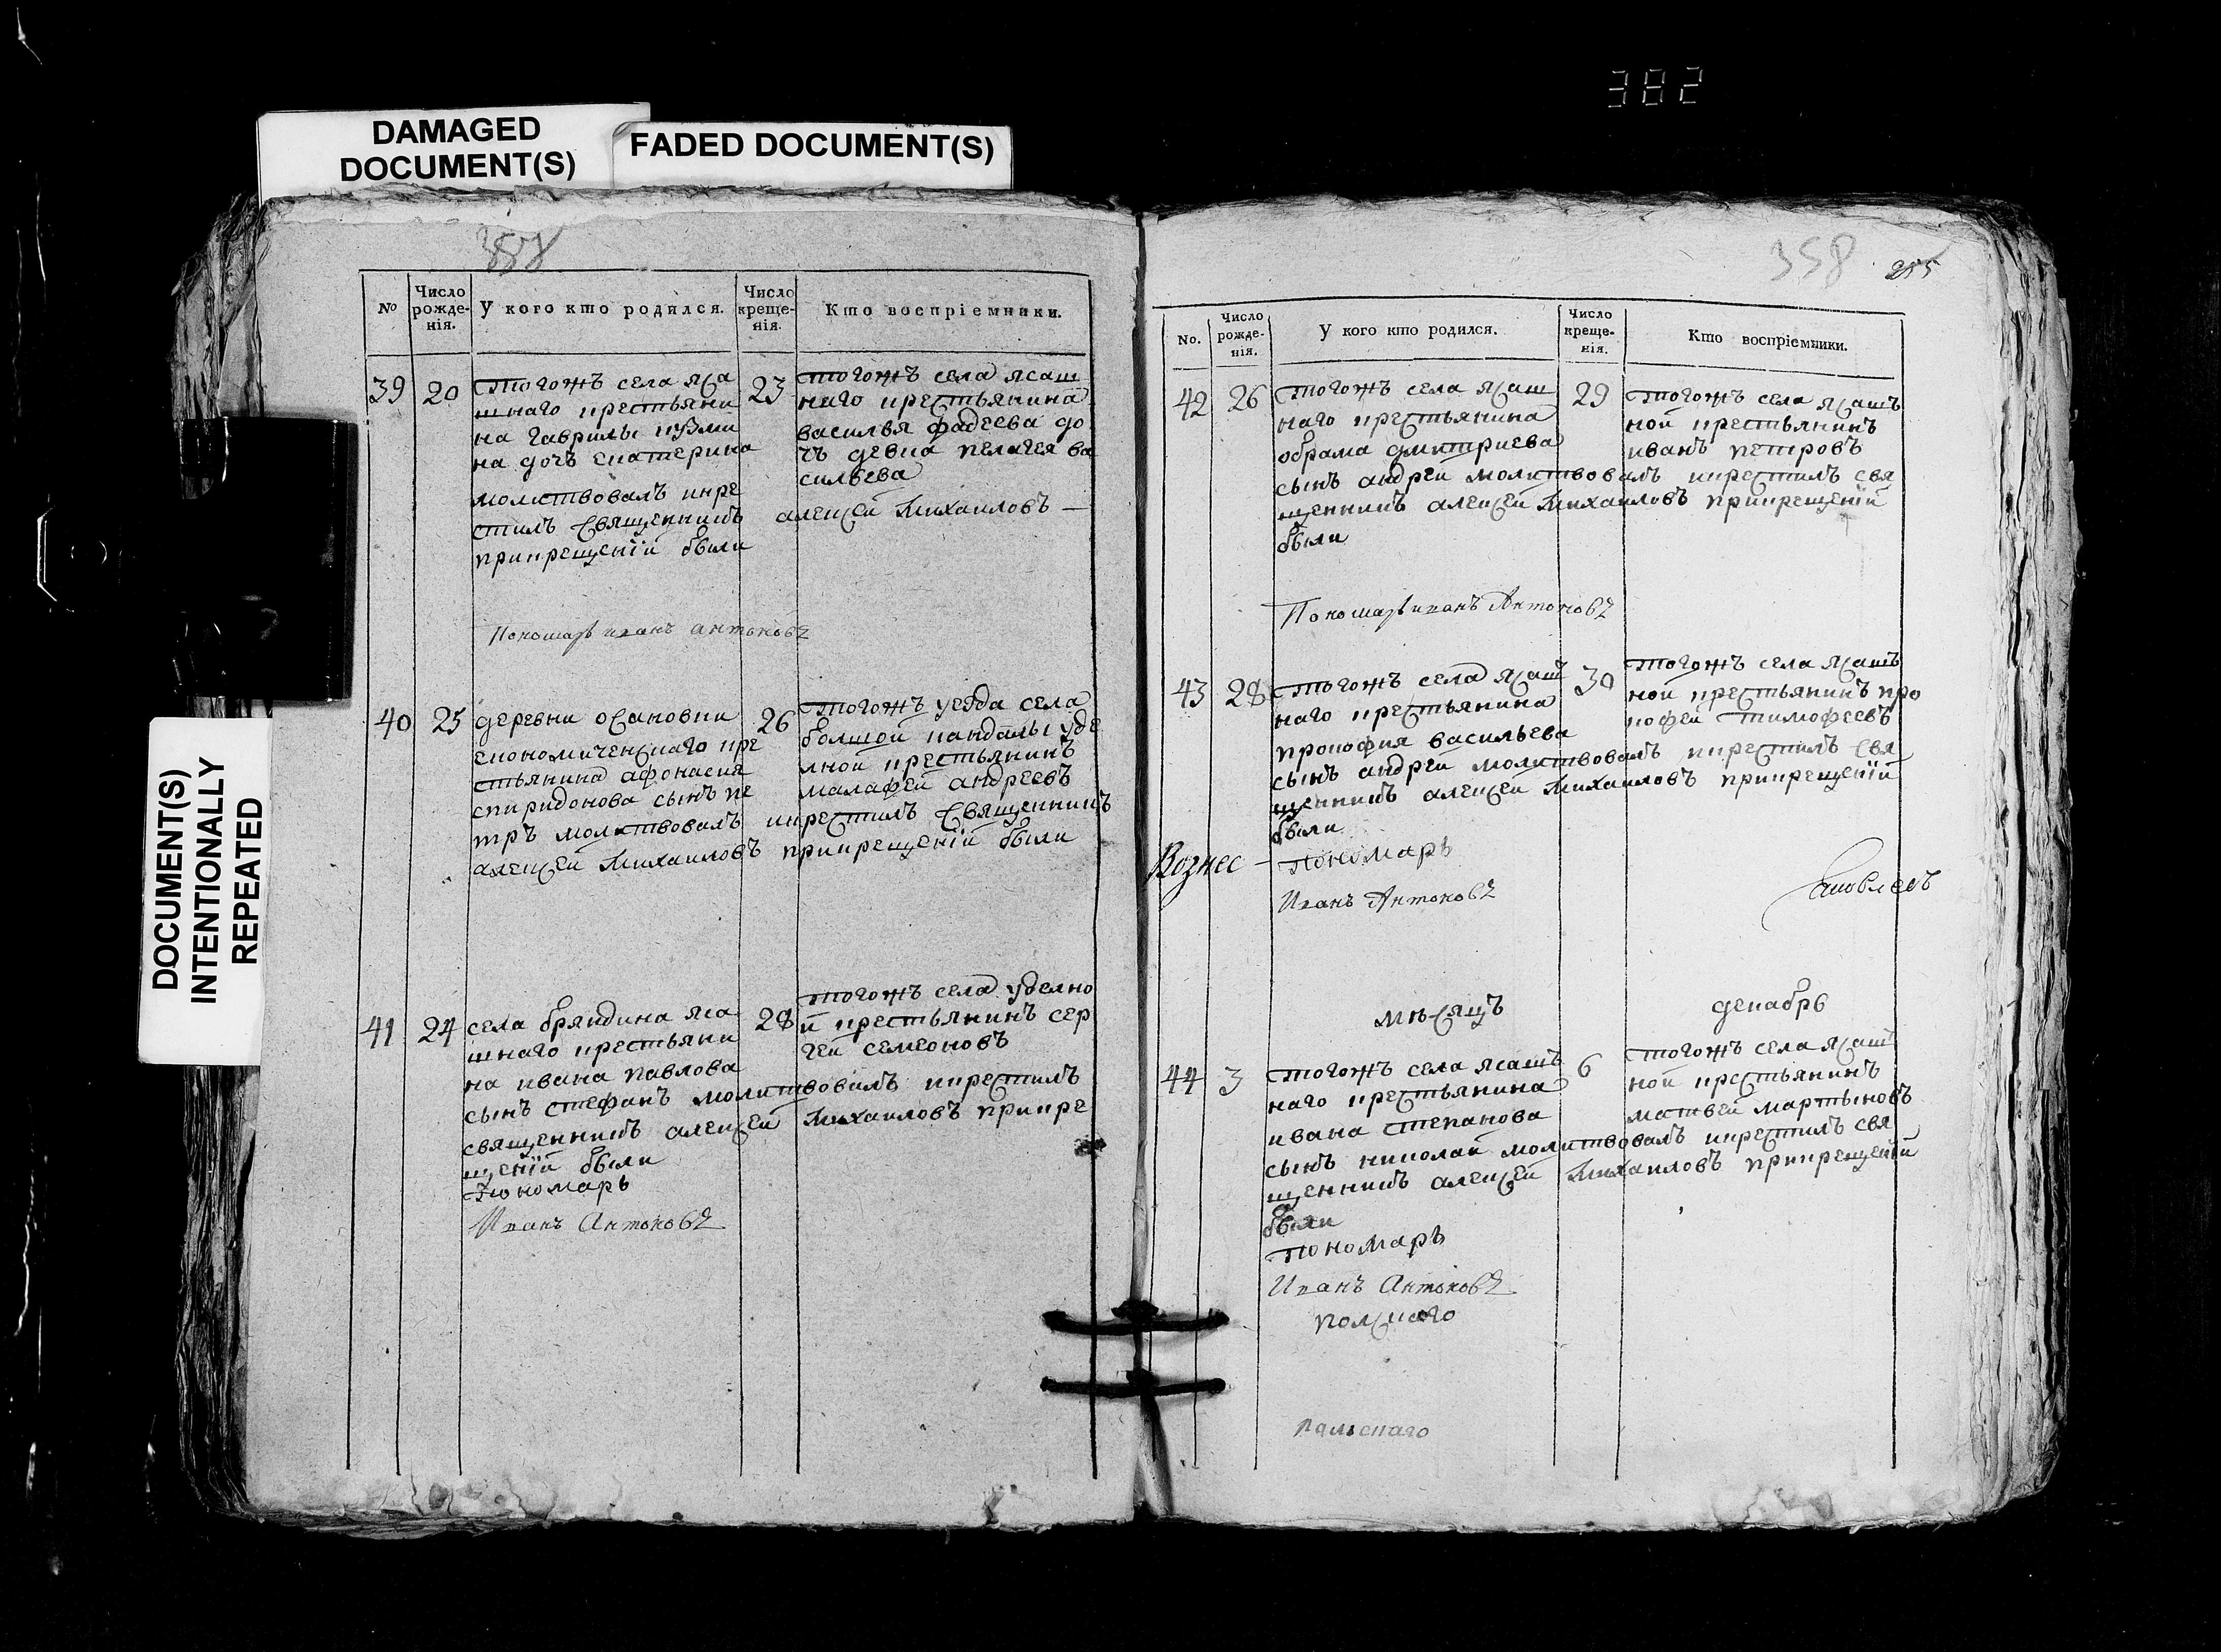 382
DAMAGED
DOCUMENT(S)
FADED DOCUMENT(S)
DOCUMENT(S)
INTENTIONALLY
REPEATED
No
Число рожде-нія.
У кого кто родился.
Число креще-нія.
Кто воспріемники.
39
20
тогожъ села яса
шнаго крестьяни
на гаврилы кузми
на дочь екатерина
молитвовалъ икре
стилъ священникъ алексей михаиловъ
прикрещеніи были
23
тогожъ села ясаш
наго крестьянина
василья фадеева до
чъ девка пелагея ва
сильева
Пономарь иванъ антоновъ
40
25
деревни осановки
економическаго кре
стьянина афонасия
спиридонова сынъ пе
тръ молитвовалъ икрестилъ священникъ
алексей михаиловъ прикрещеніи были
26
тогожъ уезда села
болшой кандалы уде
лной крестьянинъ
малафей андреевъ
41
24
села бряндина яса
шнаго крестьяни
на ивана павлова
сынъ стефанъ молитвовалъ икрестилъ
священникъ алексей михаиловъ прикре
щеніи были
28
тогожъ села уделно
й крестьянинъ сер
гей семеоновъ
Пономарь
Иванъ Антоновъ
358
255
No.
Число рожде-нія.
У кого кто родился.
Число креще-нія.
Кто воспріемники.
42
26
тогожъ села ясаш
наго крестьянина
обрама дмитриева
сынъ андрей молитвовалъ икрестилъ свя
щенникъ алексей михаиловъ прикрещеніи
были
29
тогожъ села ясашъ
ной крестьянинъ
иванъ петровъ
Пономарь иванъ Антоновъ
43
28
тогожъ села ясаш
наго крестьянина
прокофия васильева
сынъ андрей молитвовалъ икрестилъ свя
щенникъ алексей михаиловъ прикрещеніи
были
30
тогожъ села ясашъ
ной крестьянинъ про
кофей тимофеевъ
Вознес-
пономарь
Иванъ Антоновъ
Яковлевъ
мѣсяцъ
декабрь
44
3
тогожъ села ясашъ
наго крестьянина
ивана степанова
сынъ николай молитвовалъ икрестилъ свя
щенникъ алексей михаиловъ прикрещеніи
были
6
тогожъ села ясаш
ной крестьянинъ
матвей мартыновъ
пономарь
Иванъ Антоновъ